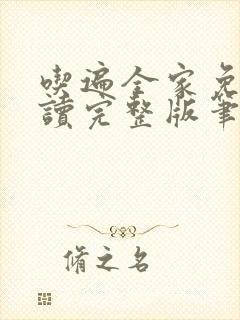 喫遍全家免
讀完整版筆
脩之名